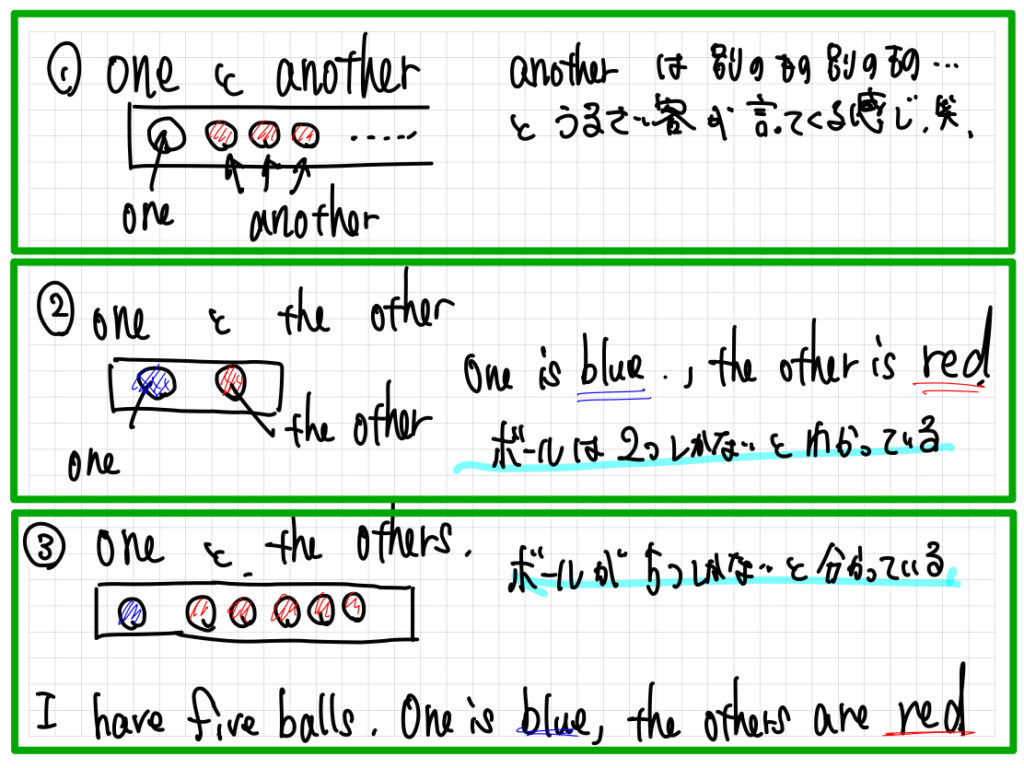 ① one と another
another は 別のもの 別のもの…
と うるさい客が 言ってくる感じ.笑.
one
another
② one と the other
One is blue., the other is red
the other
one
ボールは2つしかないと分かっている
③ one と the others.
ボールが5つしかないと分かっている
I have five balls. One is blue, the others are red